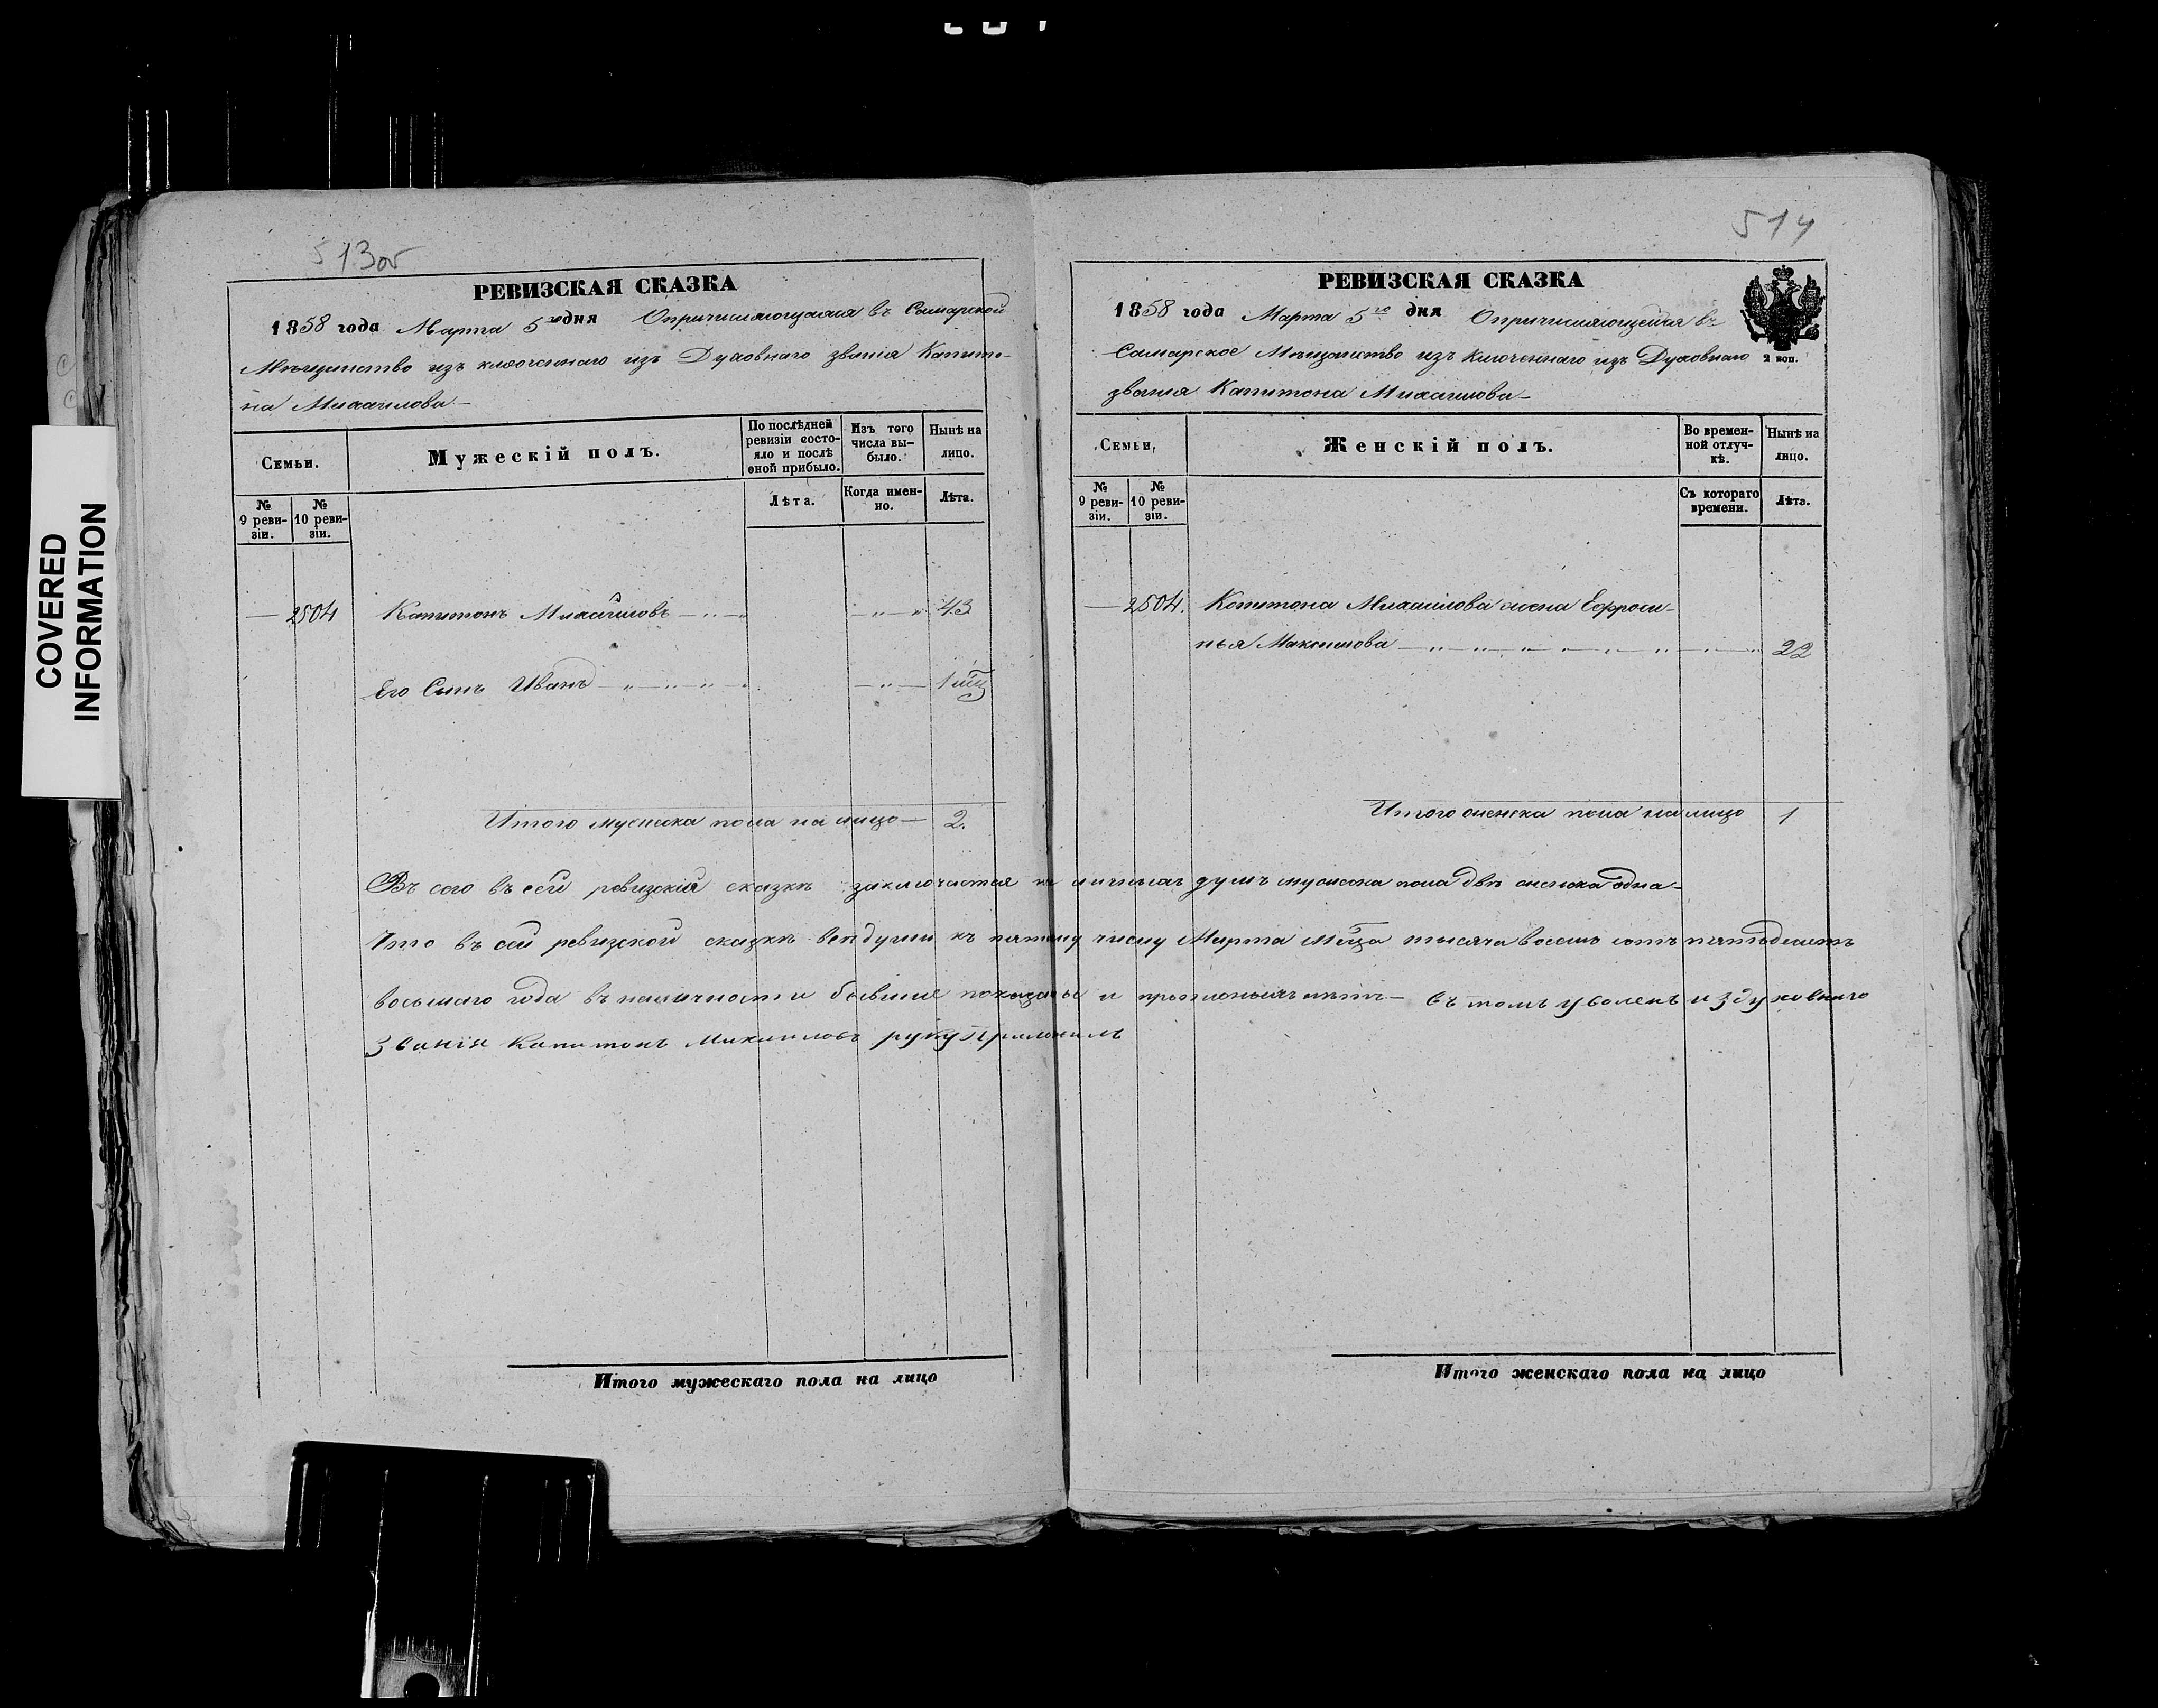 513об
РЕВИЗСКАЯ СКАЗКА
1858 года Марта 5го дня Опричисляющимся въ Самарской
Мѣщанство изъ ключеннаго изъ Духовнаго званія Капито-
на Михаилова
Семьи.
Мужескій полъ.
По послѣдней ревизіи состо-яло и послѣ оной прибыло.
Изъ того числа вы-было.
Нынѣ на лицо.
№ 9 реви-зіи.
№ 10 реви-зіи.
Лѣта.
Когда имен-но.
Лѣта.
2504 Капитонъ Михайловъ 43
Его Сынъ Иванъ 1 мц
Итого мужеска пола на лицо 2.
514
РЕВИЗСКАЯ СКАЗКА
1858 года Марта 5го дня Опричисляющейся въ
Самарское Мѣщанство изъ ключеннаго изъ Духовнаго
званія Капитона Михаилова
2 коп.
Семьи.
Женскій полъ.
Во времен-ной отлуч-кѣ.
Нынѣ на лицо.
№ 9 реви-зіи.
№ 10 реви-зіи.
Съ котораго времени.
Лѣта.
2504. Капитона Михаилова жена Ефроси-
нья Максимова 22
Итого женска пола на лицо 1
сего въ сей ревизской сказкѣ заключается на личныхъ душъ мужеска пола двѣ женска одна
Что въ сей ревизской сказкѣ всѣ души къ пятому числу Марта мѣца тысяча восемь сотъ пятдесятъ
восьмаго года въ наличности бывшие показаны и прописныхъ нѣтъ въ томъ уволенъ из духовнаго
званія Капитонъ Михаиловъ руку приложилъ
Итого мужескаго пола на лицо
Итого женскаго пола на лицо
COVERED
INFORMATION